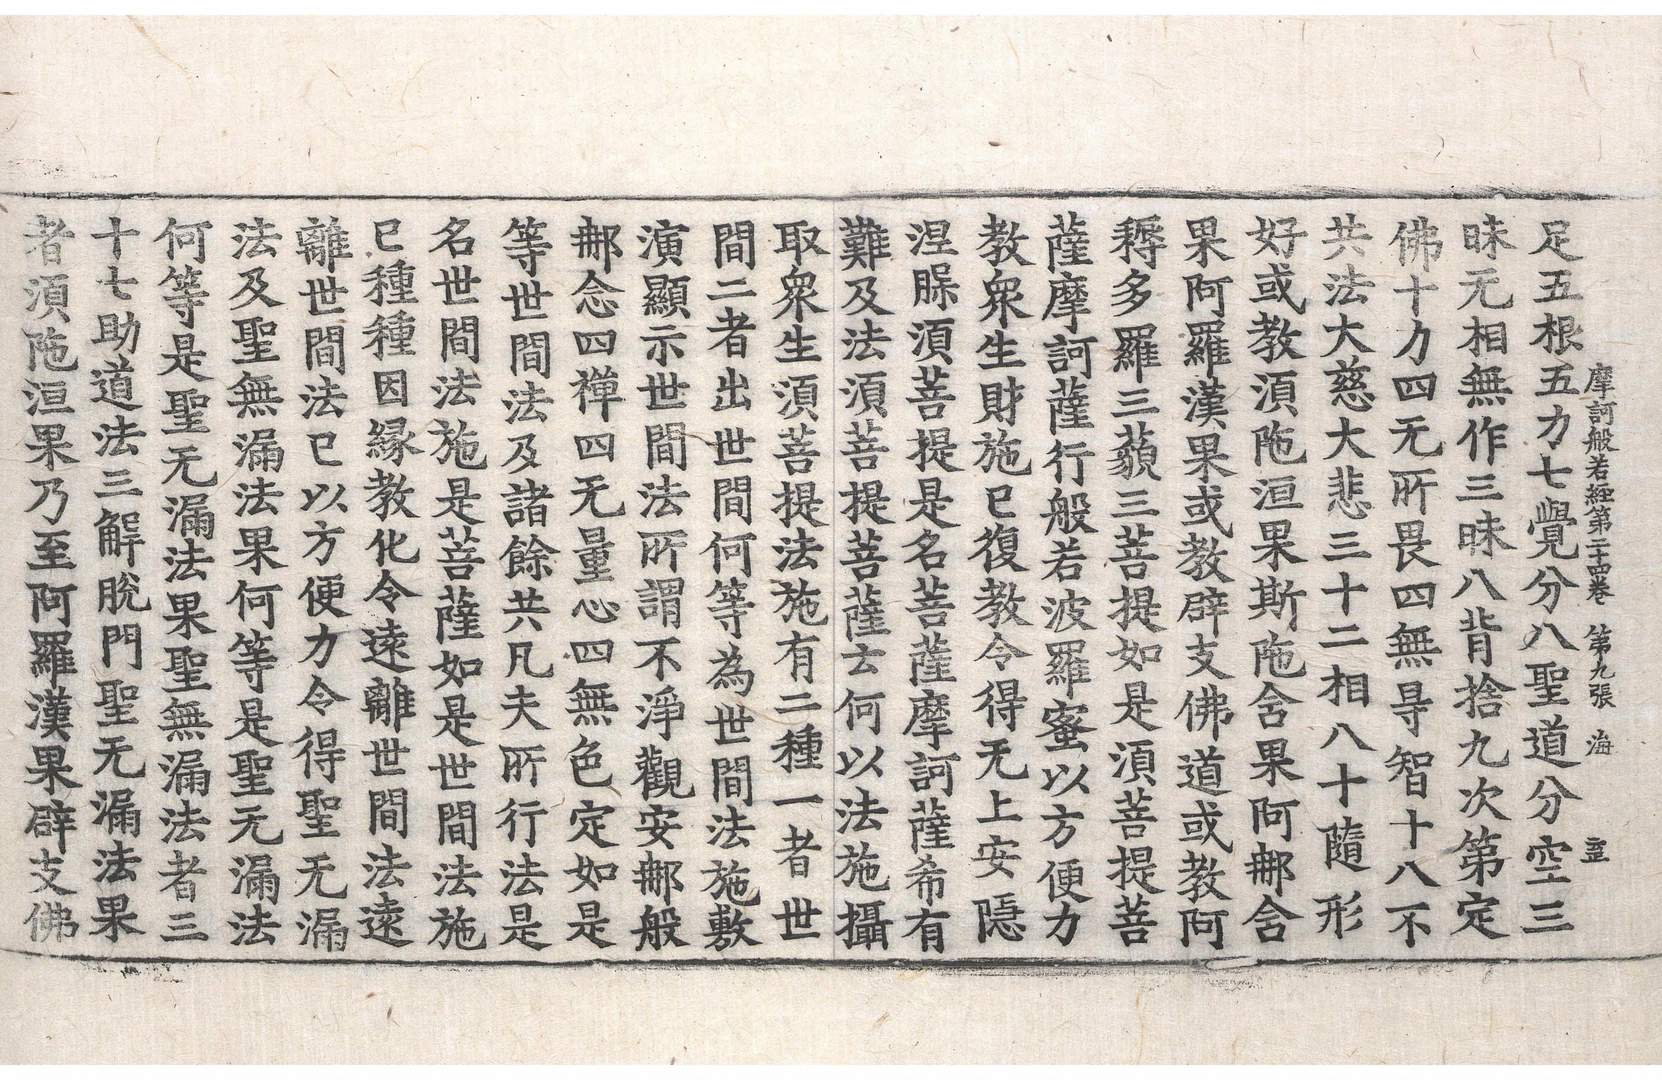 摩訶般若經第二十四卷 第九張 海
足五根五力七覺分八聖道分空三
昧无相無作三昧八背捨九次第定
佛十力四无所畏四無㝵智十八不
共法大慈大悲三十二相八十隨形
好或教湏陁洹果斯陁含果阿郍含
果阿羅漢果或教辟支佛道或教阿
耨多羅三藐三菩提如是湏菩提菩
薩摩訶薩行般若波羅蜜以方便力
教衆生財施已復教令得无上安隱
涅槃湏菩提是名菩薩摩訶薩希有
難及法湏菩提菩薩云何以法施攝
取衆生湏菩提法施有二種一者世
間二者出世間何等為世間法施敷
演顯示世間法所謂不淨觀安郍般
郍念四禪四无量心四無色定如是
等世間法及諸餘共凡夫所行法是
名世間法施是菩薩如是世間法施
已種種因緣教化令遠離世間法遠
離世間法已以方便力令得聖无漏
法及聖無漏法果何等是聖无漏法
何等是聖无漏法果聖無漏法者三
十七助道法三解脫門聖无漏法果
者湏陁洹果乃至阿羅漢果辟支佛